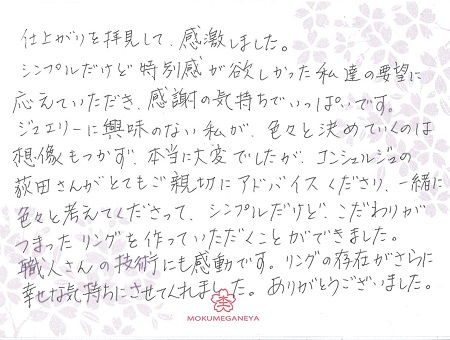 仕上がりを拝見して、感激しました。
シンプルだけど特別感が欲しかった私達の要望に
応えていただき、感謝の気持ちでいっぱいです。
ジュエリーに興味のない私が、色々と決めていくのは
想像もつかず、本当に大変でしたが、コンシェルジュの
荻田さんがとてもご親切にアドバイスくださり、一緒に
色々と考えてくださって、シンプルだけど、こだわりが
つまったリングを作っていただくことができました。
職人さんの技術にも感動です。リングの存在がさらに
幸せな気持ちにさせてくれました。ありがとうございました。
MOKUMEGANEYA